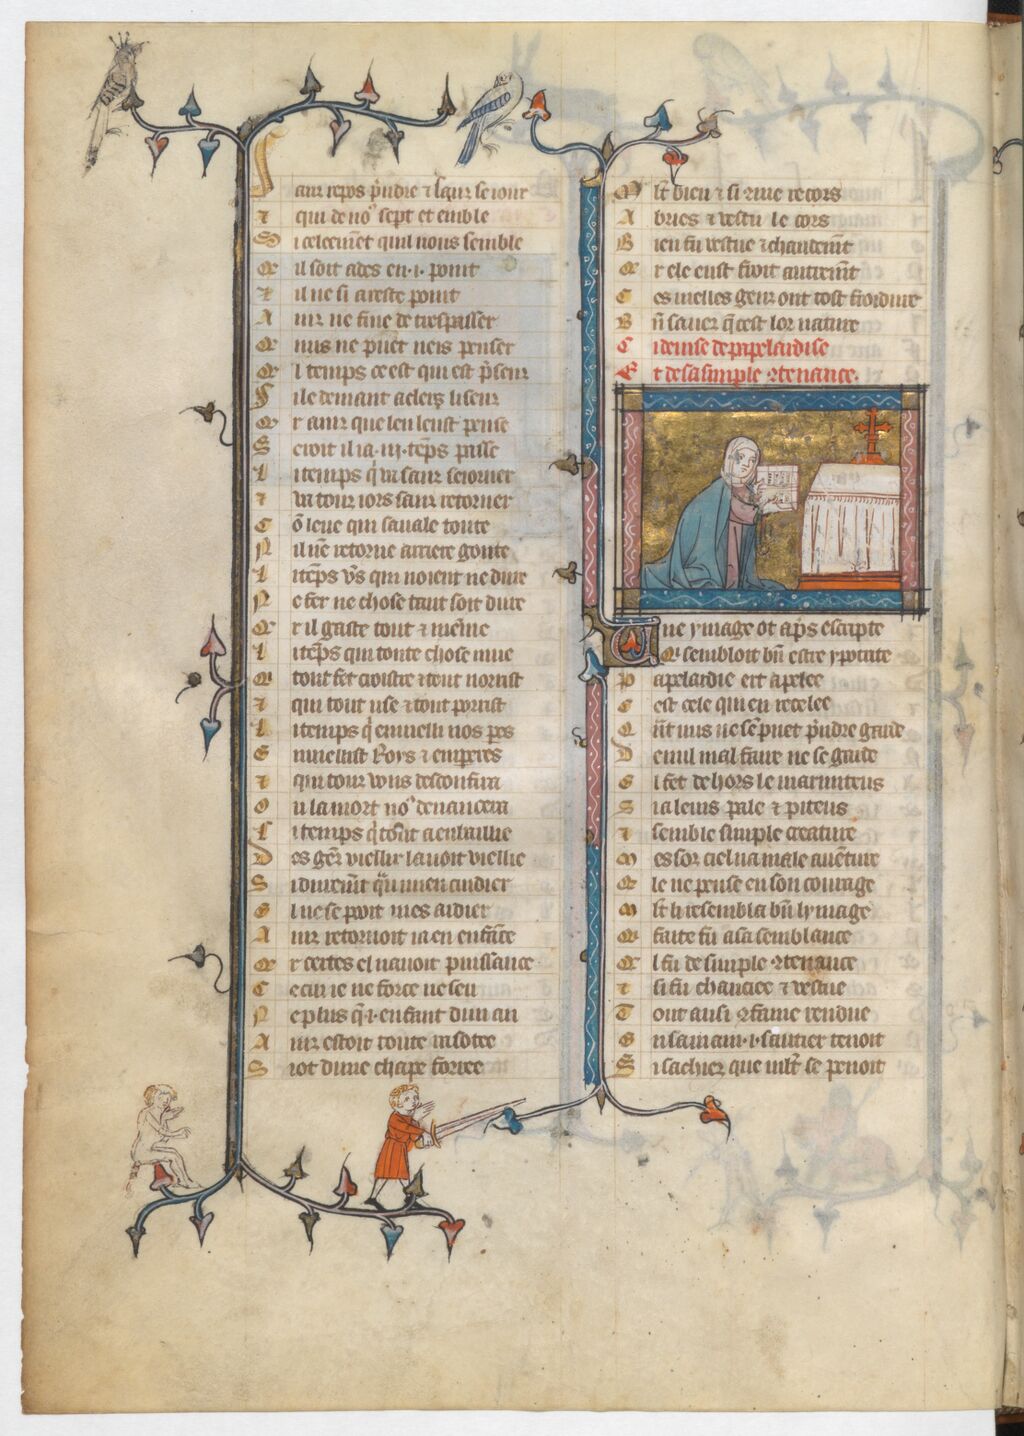 Sanz repos p̃ndre ⁊ sanz seiour
⁊ qui de noꝰ sept et emble
Si celeem̃t quil nous semble
Q̃ il soit ades en ·i· point
⁊ il ne si areste point
Ainz ne fine de trespasser
Que nus ne puet neis penser
Q̃l temps ce est qui est p̃senz
Si le demant a clers lisenz
Car ainz que len leust pense
Seroit il ia ·iii· tẽps passe
Li temps q̃ va sanz seiorner
⁊ va touz iors sanz retorner
Cõ leue qui savale toute
Nil nẽ retorne arriere goute
Li tẽps vs̃ qui noient ne dure
Ne fer ne chose tant soit dure
Car il gaste tout ⁊ meniue
Li tẽps qui toute chose mue
Qui tout fet croistre ⁊ tout norrist
⁊ qui tout use ⁊ tout porrist
Li temps q̃ enuielli nos peres
Enuiellist Roys ⁊ emperes
⁊ qui touz vous desconfira
Ou la mort noꝰ deuancera
Li temps q̃ tout a en baillie
Des genz viellir lauoit viellie
Si durem̃t quau mien cuidier
El ne se pooit mes aidier
Ainz retornoit ia en enfãce
Car certes el nauoit puissance
Ce cui ie ne force ne sen
Ne plus q̃ ·i· enfant dun an
Ainz estoit toute rasotee
Si ot dune chape forree
Ml̃t bien ⁊ si ⁊me recors
Abries ⁊ vestu le cors
Bien fu vestue ⁊ chaudem̃t
Car ele eust froit autrem̃t
Ces vielles genz ont tost froidure
Bñ sauez q̃ cest lor nature
Ci deuise de papelardise
Et de sa simple ꝯtenance.
Une ymage ot ap̃s escripte
Qui sembloit bñ estre ypocrite
Papelardie ert apelee
Cest cele qui en recelee
Qñt nus ne sẽ puet p̃ndre garde
De nul mal faire ne se garde
El fet dehors le marmiteus
Si a le uis pale ⁊ piteus
⁊ semble simple creature
Mes soz ciel na male auẽture
Q̃le ne pense en son courage
Ml̃t la resembla bñ lymage
Qui faite fu a sa semblance
Quel fu de simple ꝯtenance
⁊ si fu chaucee ⁊ vestue
Tout ausi ꝯ fame rendue
En sa main ·i· sautier tenoit
Si sachiez que ml̃t se penoit